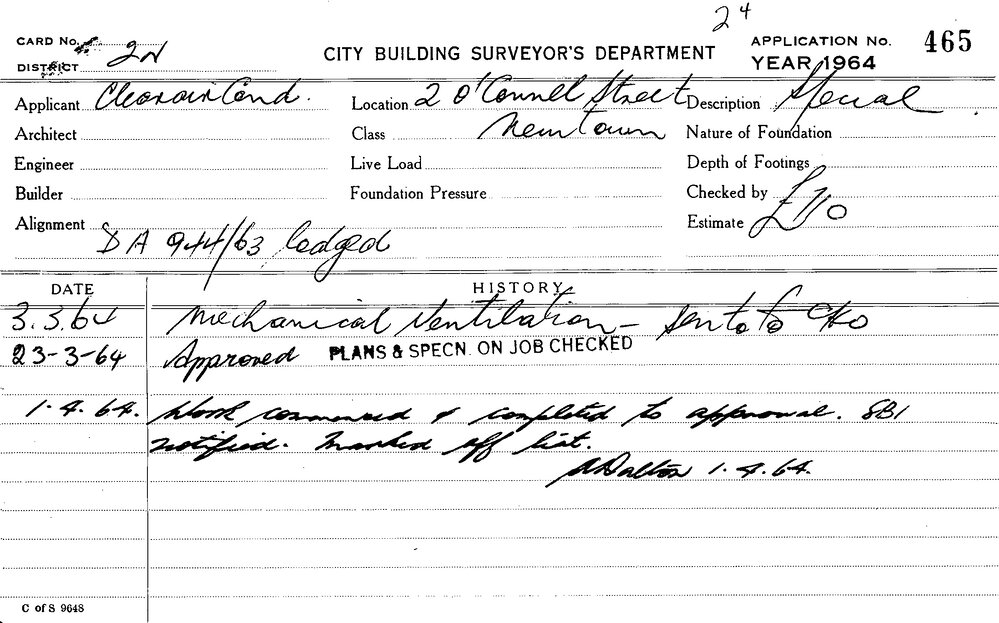 24
CARD No. CITY BUILDING SURVEYOR'S DEPARTMENT APPLICATION No. 465
DISTRICT 2N YEAR 1964
Applicant Cleanair Cond. Location 2 O'Connell Street Description Special
Architect Class Newtown Nature of Foundation
Engineer Live Load Depth of Footings
Builder Foundation Pressure Checked by
Alignment Estimate £110
DA 944/63 lodged
DATE HISTORY
3.3.64 Mechanical Ventilation - sent to
23-3-64 Approved PLANS & SPECN. ON JOB CHECKED
1.4.64. Work commenced & completed to approval. SBI
notified. Marked off list.
Dalton 1.4.64.
C of S 9648